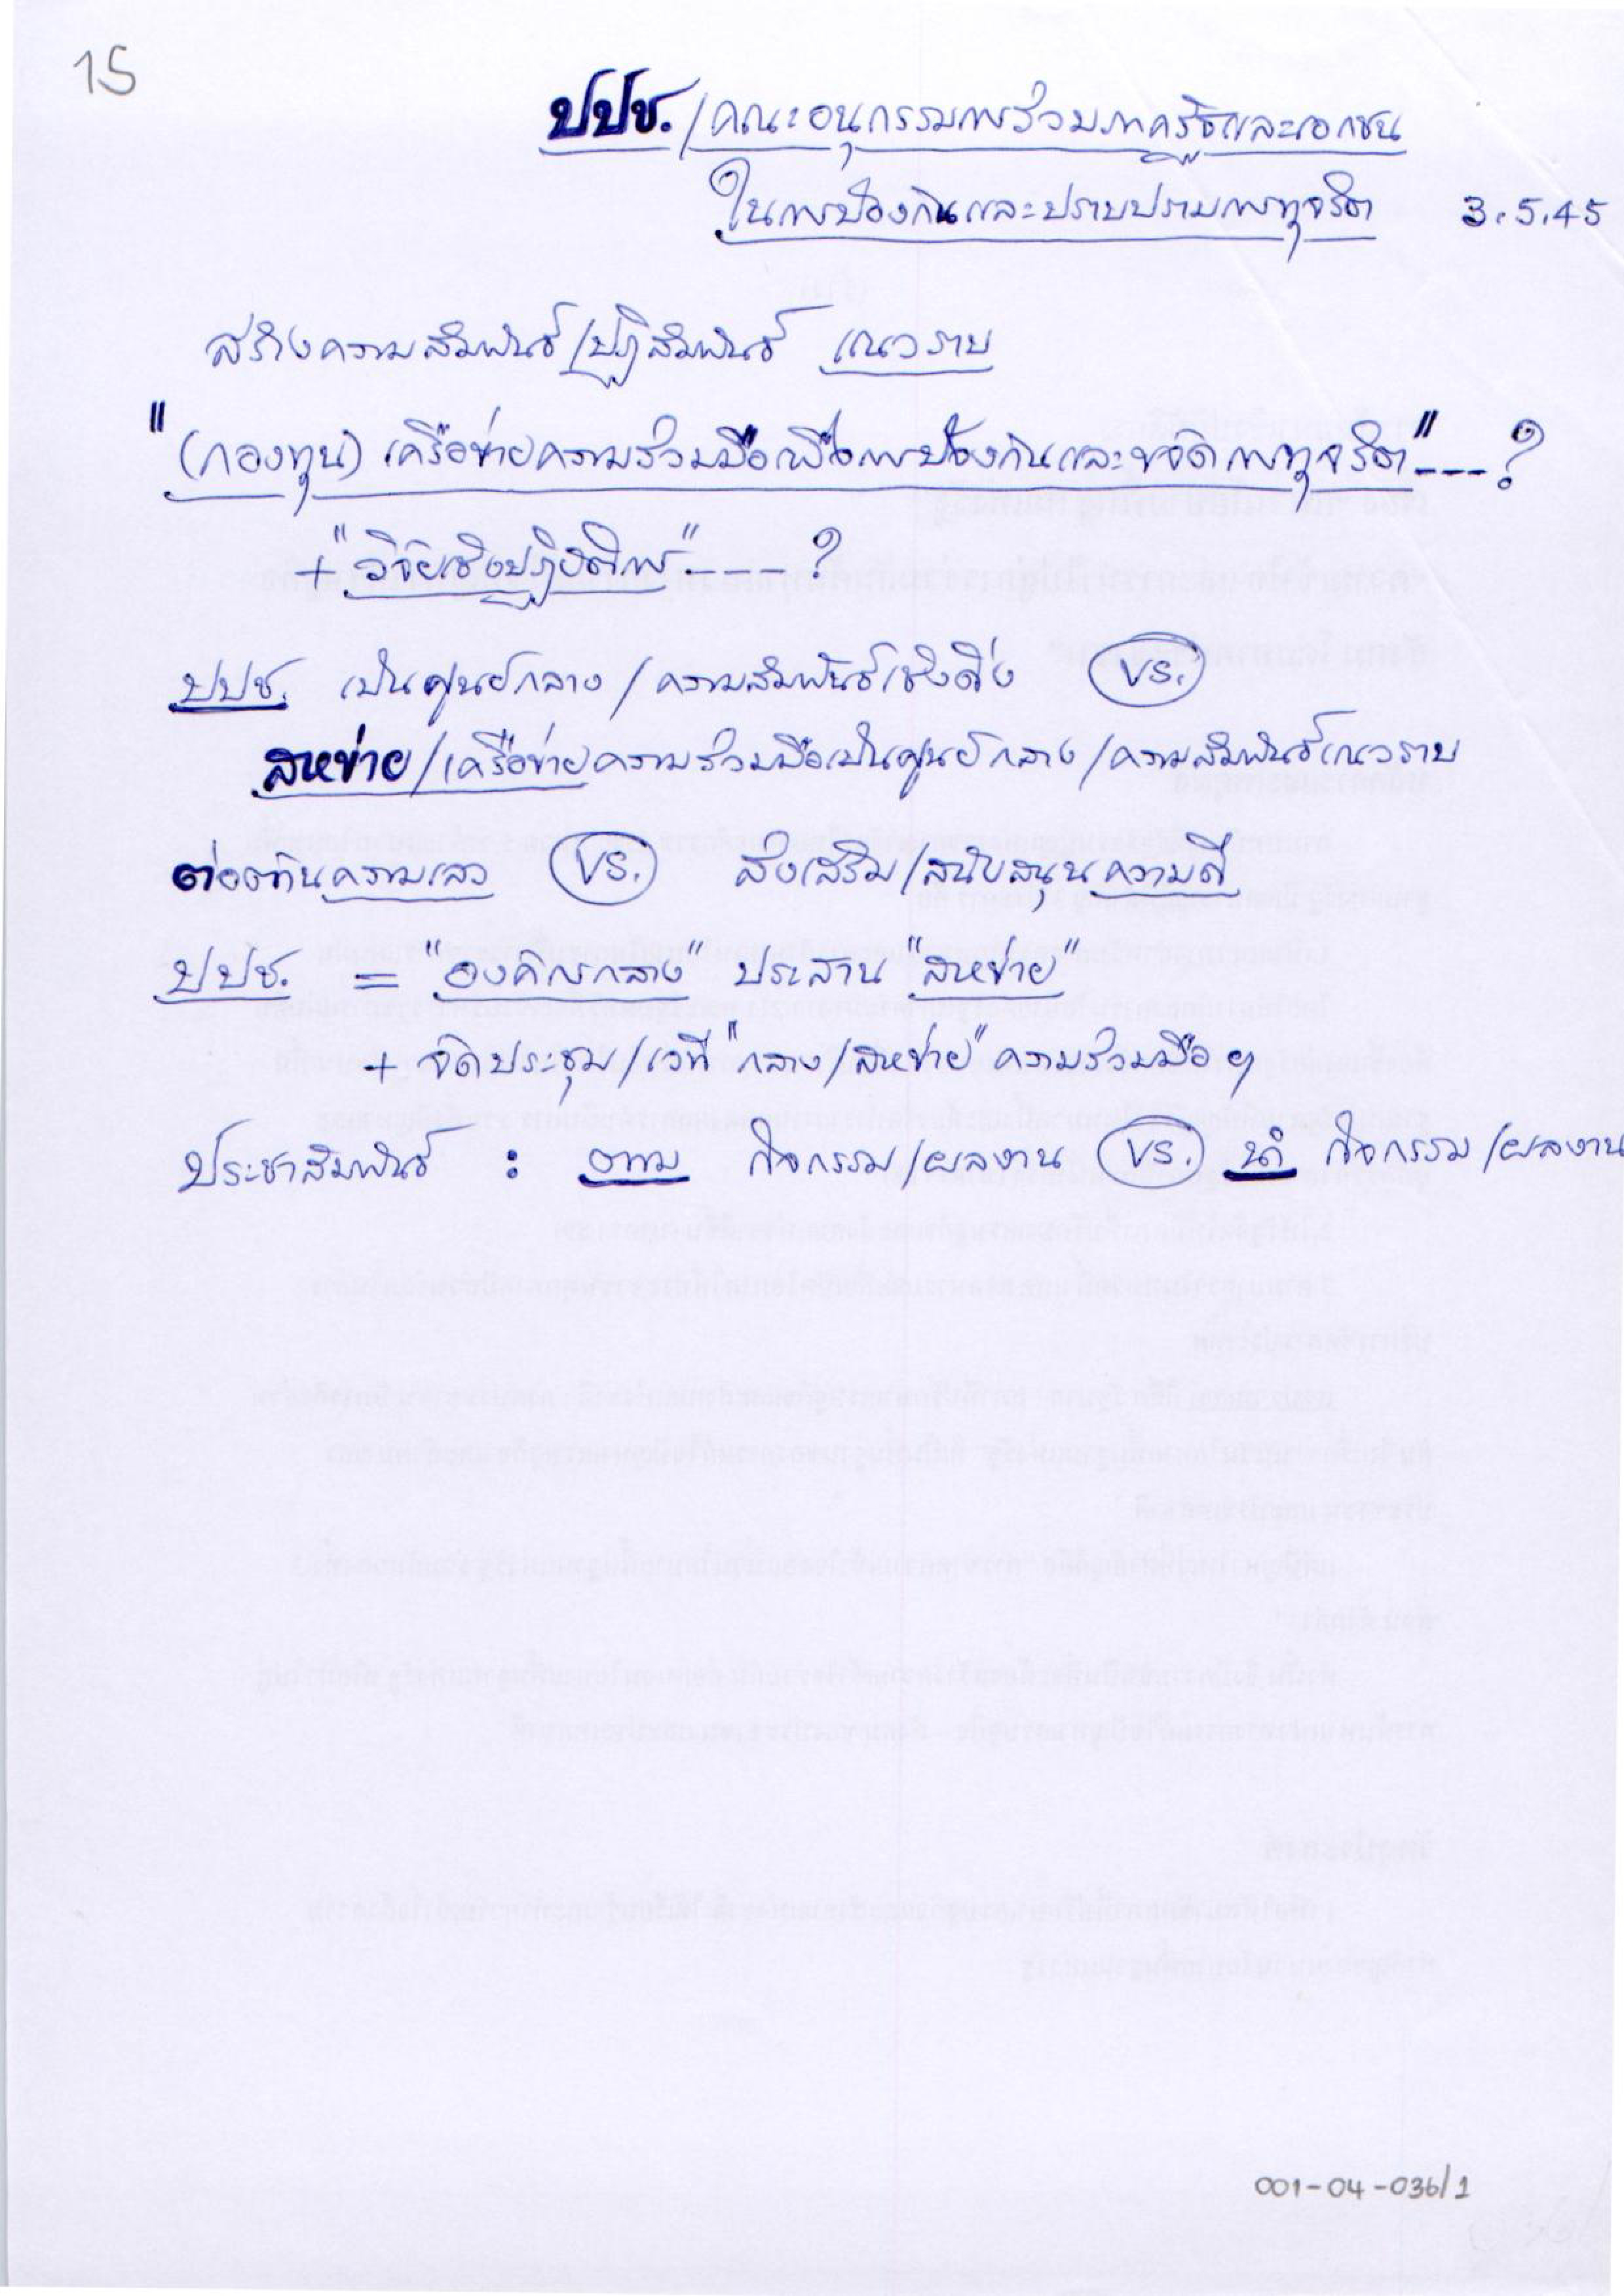 15
ปปช./คณะอนุกรรมการร่วมภาครัฐและเอกชน
ในการป้องกันและปราบปรามการทุจริต 3.5.45
สร้างความสัมพันธ์/ปฏิสัมพันธ์ แนวราบ
"(กองทุน) เครือข่ายความร่วมมือเพื่อการป้องกันและขจัดการทุจริต"---?
+ "วิจัยเชิงปฏิบัติการ"----?
ปปช. เป็นศูนย์กลาง/ความสัมพันธ์เชิงดิ่ง vs.
สหข่าย/เครือข่ายความร่วมมือเป็นศูนย์กลาง/ความสัมพันธ์แนวราบ
ต่อต้านความเลว vs. ส่งเสริม/สนับสนุนความดี
ปปช. = "องค์กรกลาง" ประสาน "สหข่าย"
+ จัดประชุม/เวที "กลาง/สหข่าย" ความร่วมมือ ฯ
ประชาสัมพันธ์ : ตาม กิจกรรม/ผลงาน vs. นำ กิจกรรม/ผลงาน
001-04-036/1